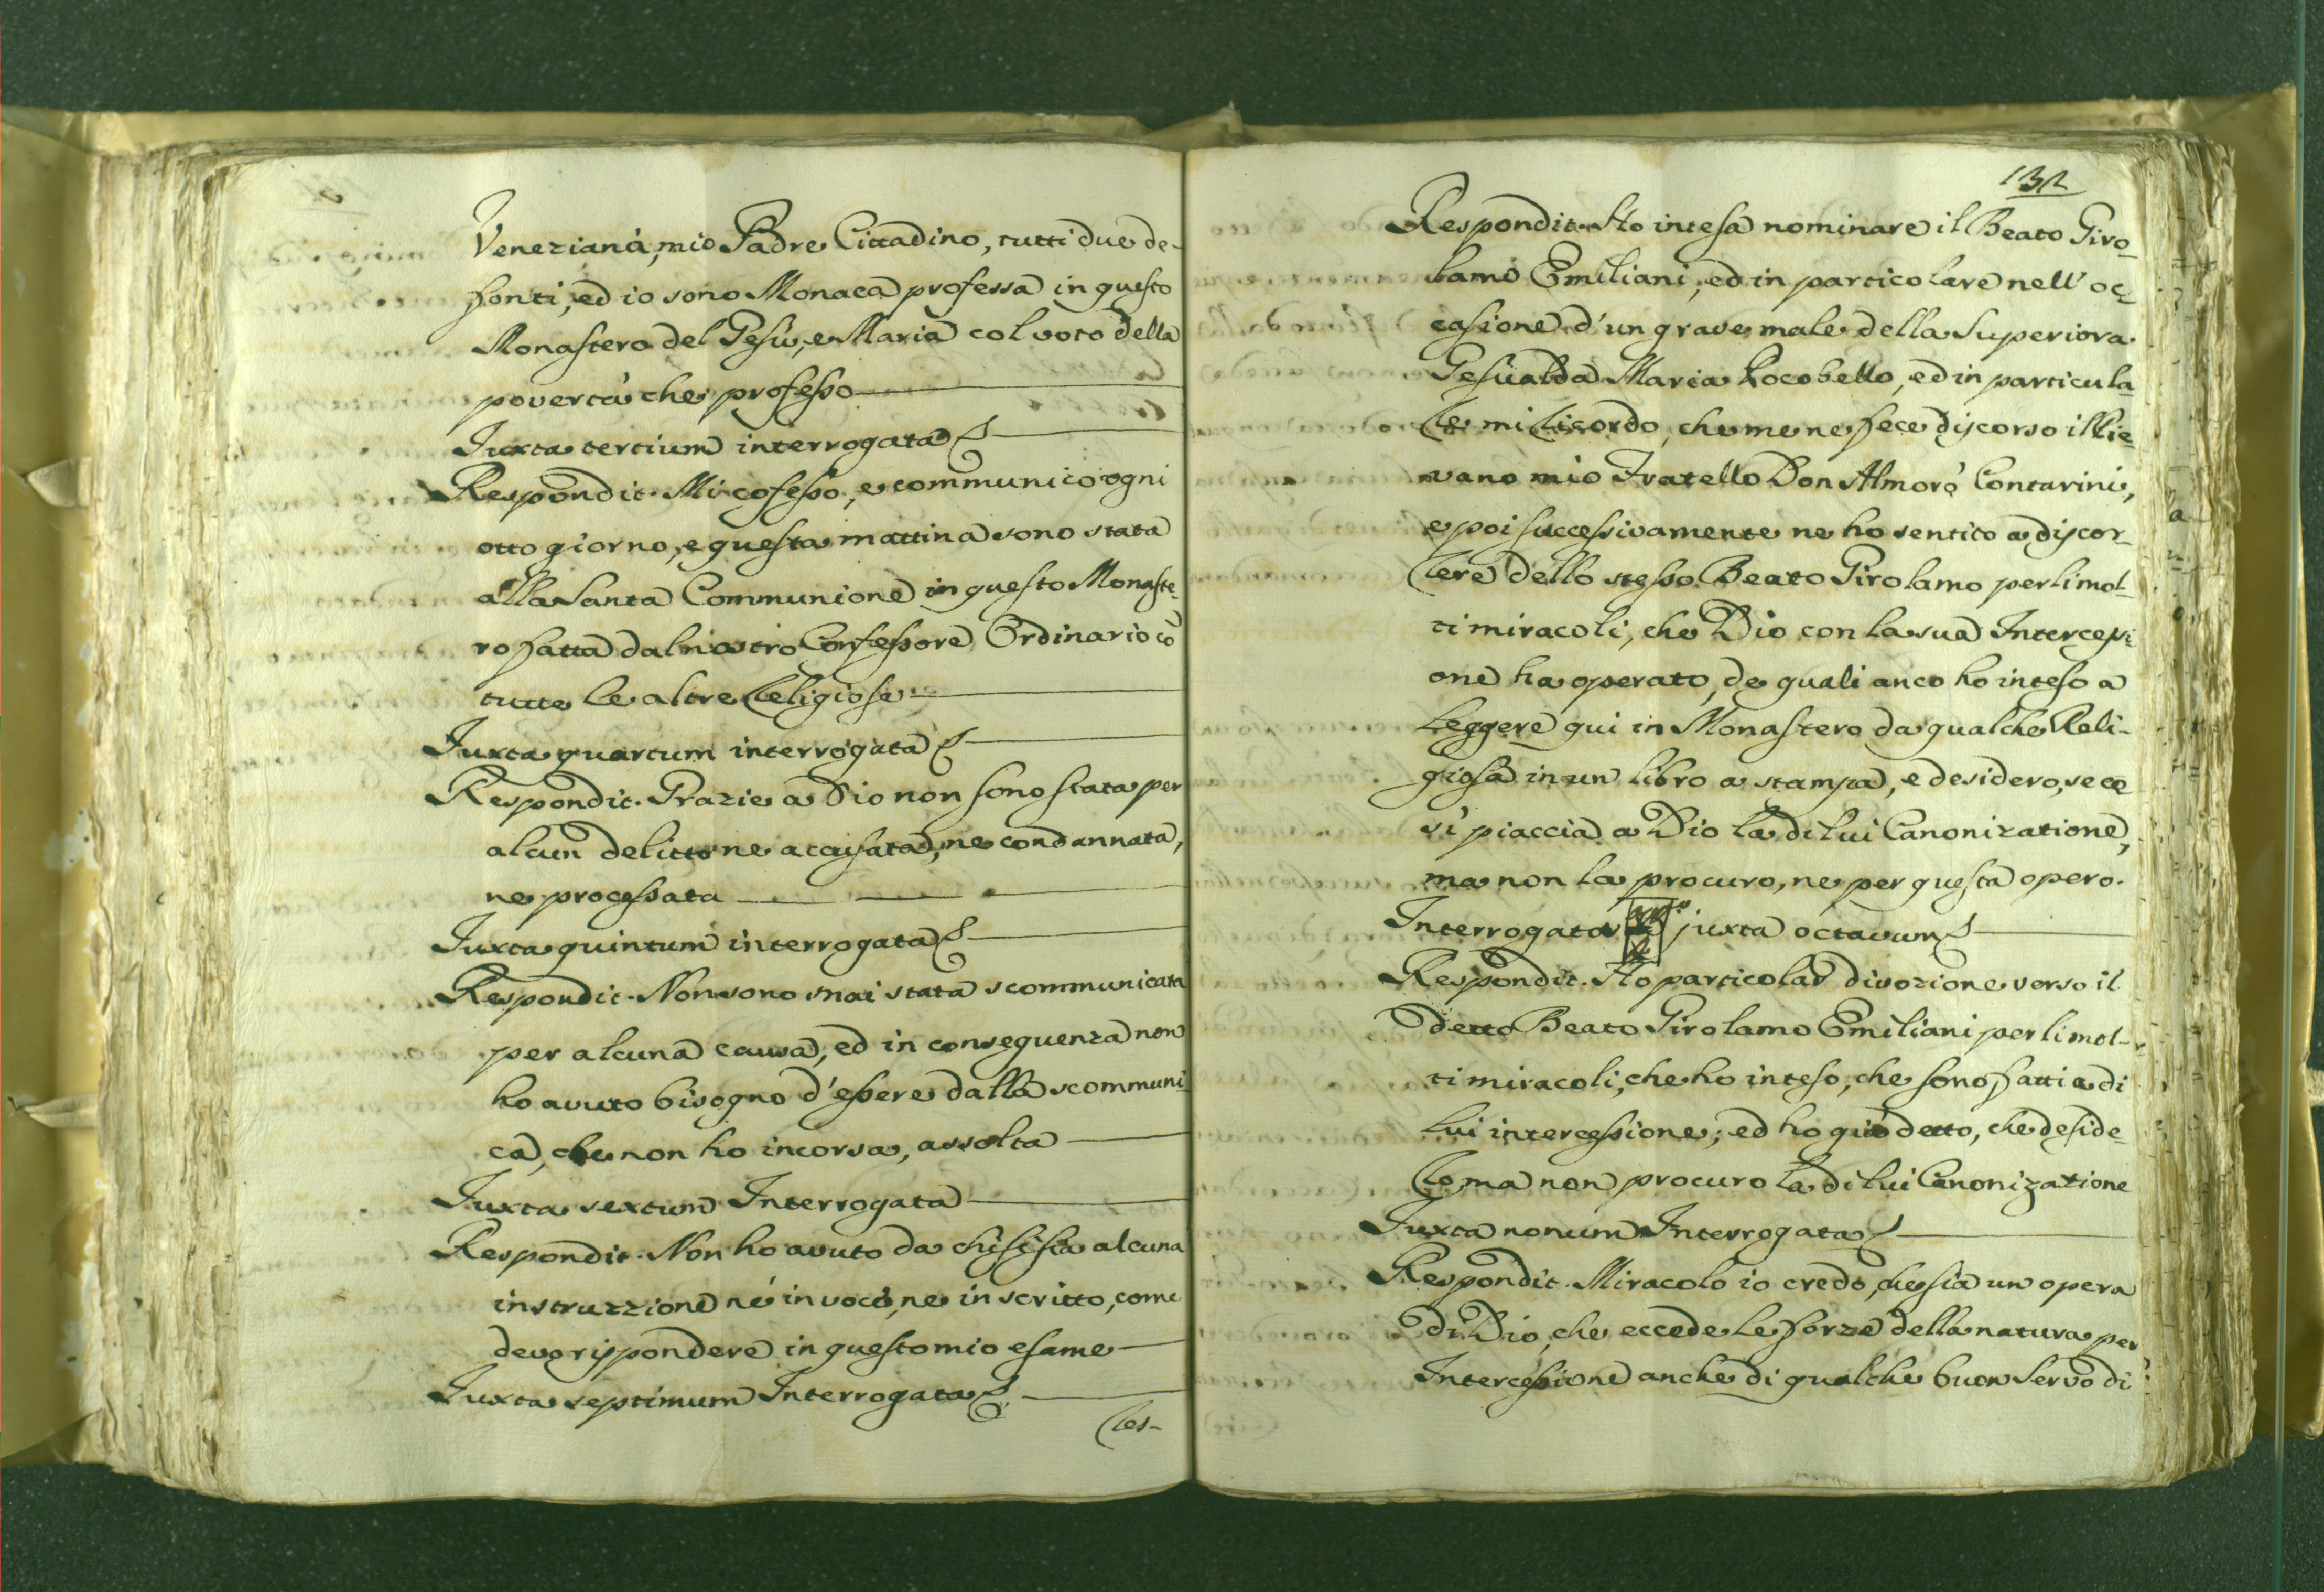 Veneziana, mio Padre Cittadino, tutti due de-
fonti, ed io sono Monaca professa in questo
Monastero del Gesù, e Maria col voto della
povertà che professo
Juxta tertium interrogata
Respondit. Mi cofesso, e communico ogni
otto giorno, e questa mattina sono stata
alla Santa Communione in questo Monaste-
ro fatta dal nostro Confessore Ordinario cō
tutte le altre Religiose
Juxta quartum interrogata
Respondit. Grazie a Dio non sono stata per
alcun delitto ne accusata, ne condannata,
ne processata
Juxta quintum interrogata
Respondit. Non sono mai stata scommunicata
per alcuna causa, ed in conseguenza non
ho avuto bisogno d'essere dalla scommuni-
ca, che non ho incorsa, assolta
Juxta sextum Interrogata
Respondit. Non ho avuto da chi si sia alcuna
instruzzione né in voce, ne in scritto, come
devo rispondere in questo mio esame
Juxta septimum Interrogata
Res-
132
Respondit. Ho intesa nominare il Beato Giro-
lamo Emiliani, ed in particolare nell' oc-
casione d'un grave male della Superiora
Gesualda Maria Rocobello, ed in particula-
re mi ricordo, che me ne fece discorso il Pie-
vano mio Fratello Don Almorò Contarini,
e poi successivamente ne ho sentito a discor-
rere dello stesso Beato Girolamo per li mol-
ti miracoli, che Dio con la sua Intercessi-
one ha operato, de quali anco ho inteso a
Leggere qui in Monastero da qualche Reli-
giosa in un libro a stampa, e desidero, se co
sì piaccia a Dio la di lui Canonizatione,
ma non la procuro, ne per questa opero.
Interrogata juxta octavum
Respondit. Ho particolar divozione verso il
detto Beato Girolamo Emiliani per li mol-
ti miracoli, che ho inteso, che sono fatti a di
lui intercessione; ed ho già detto, che deside-
ro, ma non procuro la di lui Canonizatione
Juxta nonum Interrogata
Respondit. Miracolo io credo, che sia un opera
di Dio, che eccede le forze della natura per
Intercessione anche di qualche buon Servo di